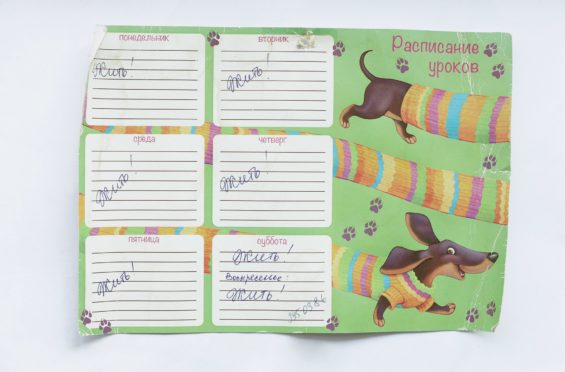 понедельник
Жить!
вторник
Жить!
Расписание
уроков
среда
Жить!
четверг
Жить!
пятница
Жить!
суббота
Жить!
Воскресенье:
Жить!